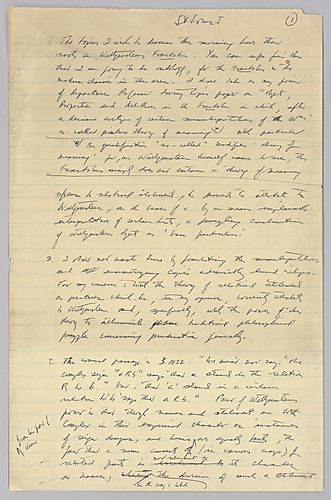 St Louis I
①
1. The topics I wish to discuss this morning have their
roots in Wittgenstein's Tractatus. You can infer from this
that I am going to do ontology, for the Tractatus is the
modern classic in this area. I shall take as my point
of departure Professor Irving Copi's paper on "Objects,
Properties and Relations in the Tractatus" in which, after
a decisive critique of certain misinterpretations of W's
so-called picture theory of meaning with particular
the qualification 'so-called' modifies 'theory of
meaning' for, as Wittgenstein himself came to see, the
Tractatus simply does not contain a theory of meaning
reference to relational statements, he proceeds to attribute to
Wittgenstein, on the basis of a by no means implausible
interpretation of certain texts, a puzzling construction
of Wittgenstein's objects as 'bare particulars.'
2. I shall not waste time by formulating the misinterpretations
and summarizing Copi's admirably lucid critique.
For my concern is with the theory of relational statements
as pictures which he, in my opinion, correctly attributes
to Wittgenstein and, specifically, with the power of this
theory to illuminate traditional philosophical
puzzles concerning predication generally.
3. The crucial passage is 3.1432 "We must not say: 'the
complex sign "aRb" says: that a stands in the relation
R to b.' but: 'that "a" stands in a certain
relation to "b" says that aRb.'" Part of Wittgenstein's
point is that though names and statements are both
complex in their empirical character as instances
of sign designs, and equally facts, the
fact that a name consists of (in various ways)
related parts is not relevant to its character
as name,
of such a statement